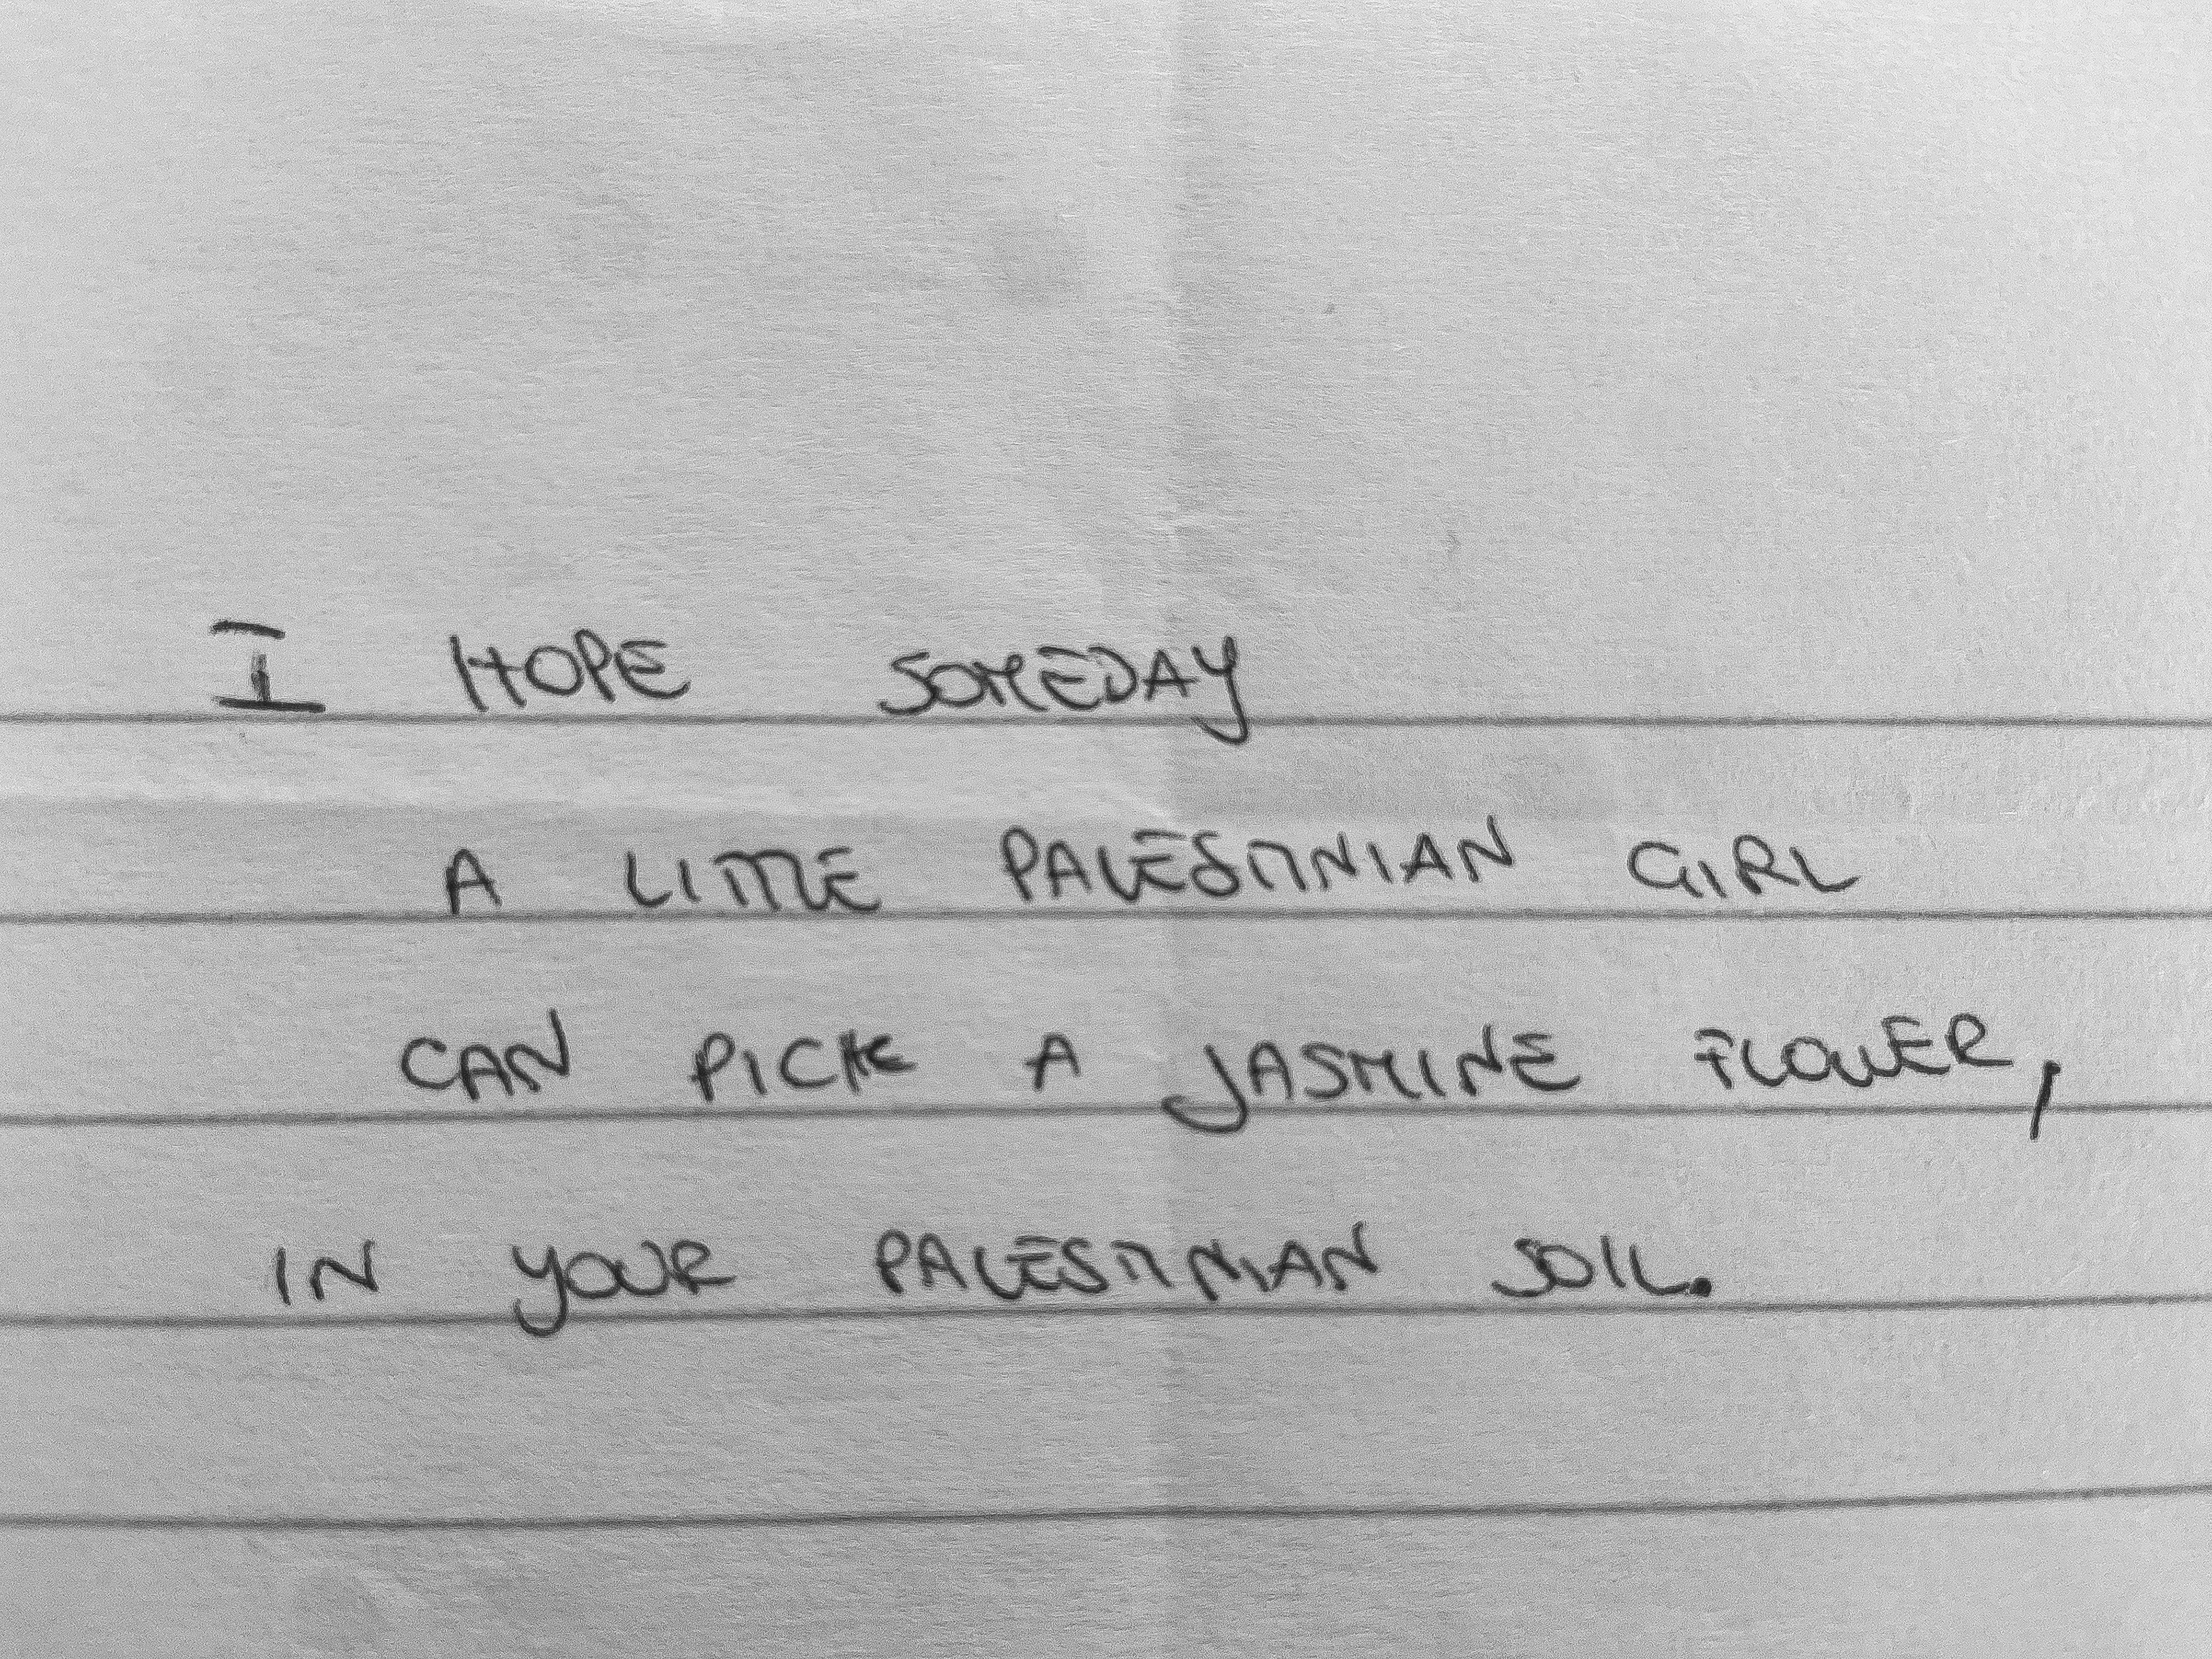 I HOPE SOMEDAY
A LITTLE PALESTINIAN GIRL
CAN PICK A JASMINE FLOWER,
IN YOUR PALESTINIAN SOIL.